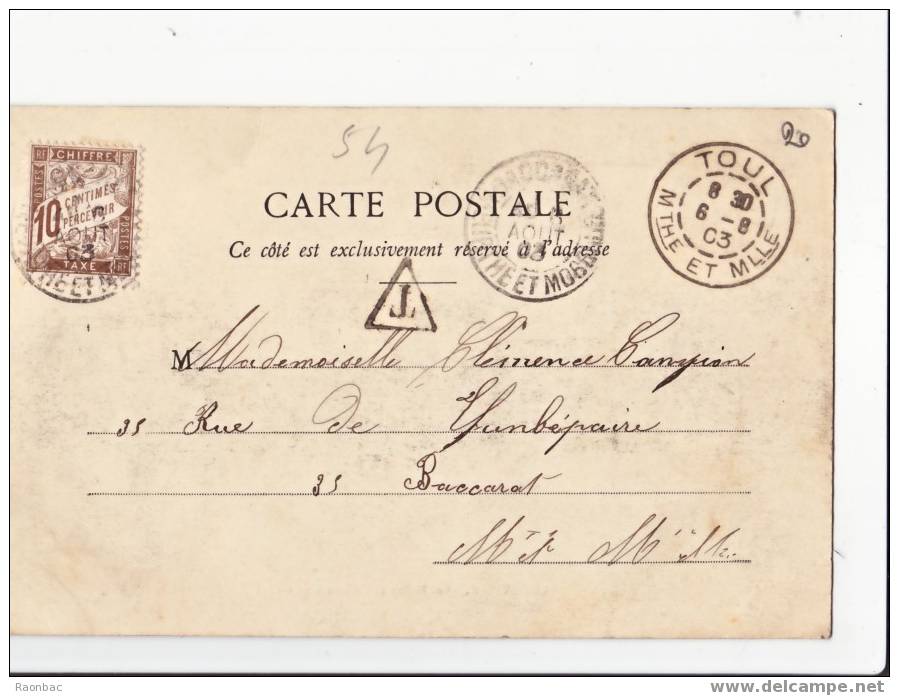 54
20
CARTE POSTALE
Ce côté est exclusivement réservé à l'adresse
RF CHIFFRE RF
POSTES
10 CENTIMES
À
PERCEVOIR
POSTES
TAXE
AOUT
03
BACCARAT
AOUT
03
THE ET MOSELLE
TOUL
8 30
6 - 8
03
MTHE ET MLLE
T
M Mademoiselle Clémence Campion
35 Rue de
35 Baccarat
Mthe Mlle
Raonbac
delcampe.net